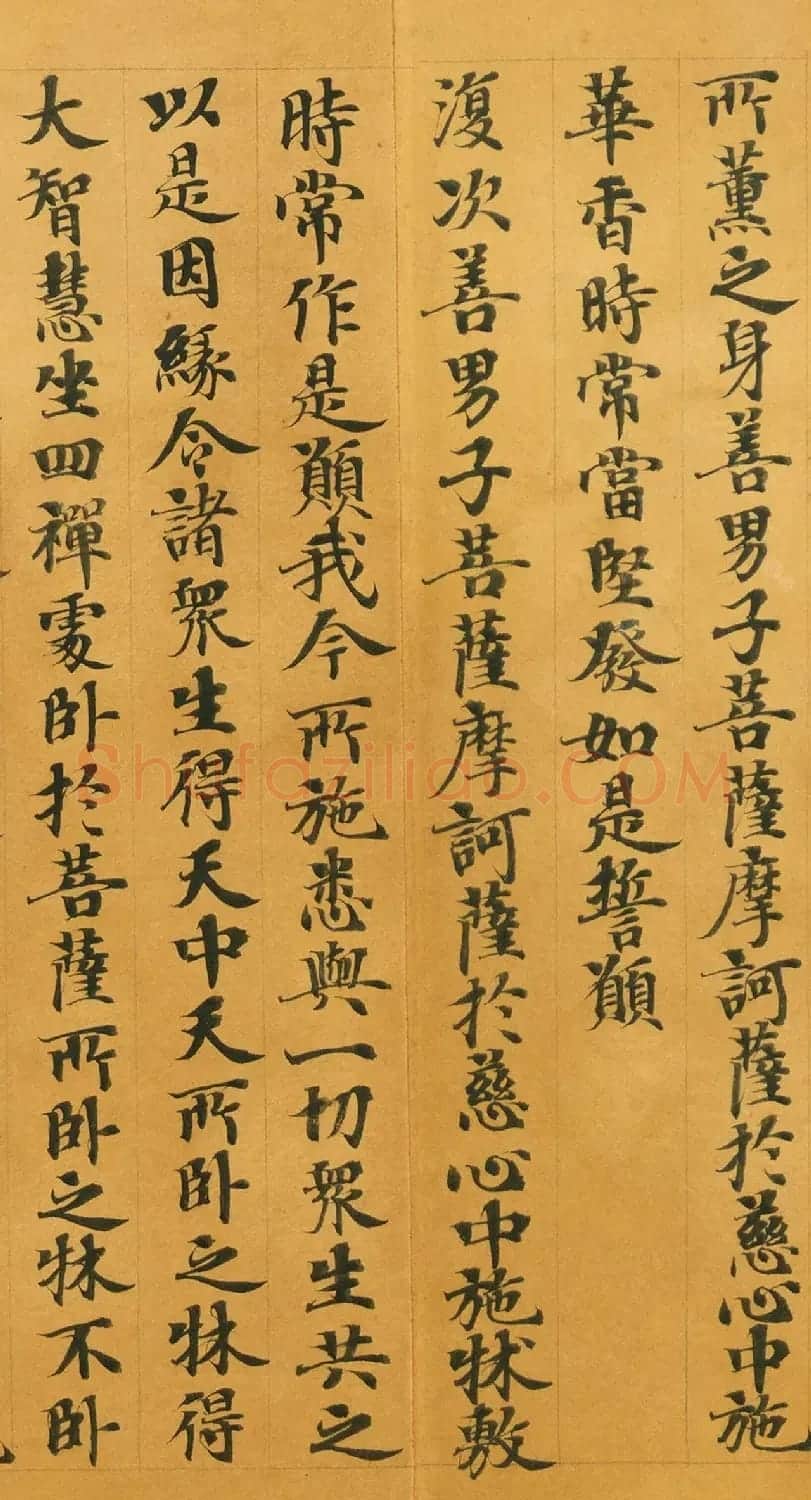 所薰之身善男子菩薩摩訶薩於慈心中施
華香時常當堅發如是誓願
復次善男子菩薩摩訶薩於慈心中施牀敷
時常作是願我今所施悉與一切眾生共之
以是因緣令諸眾生得天中天所臥之牀得
大智慧坐四禪處臥於菩薩所臥之牀不臥
Shufaziliao.COM